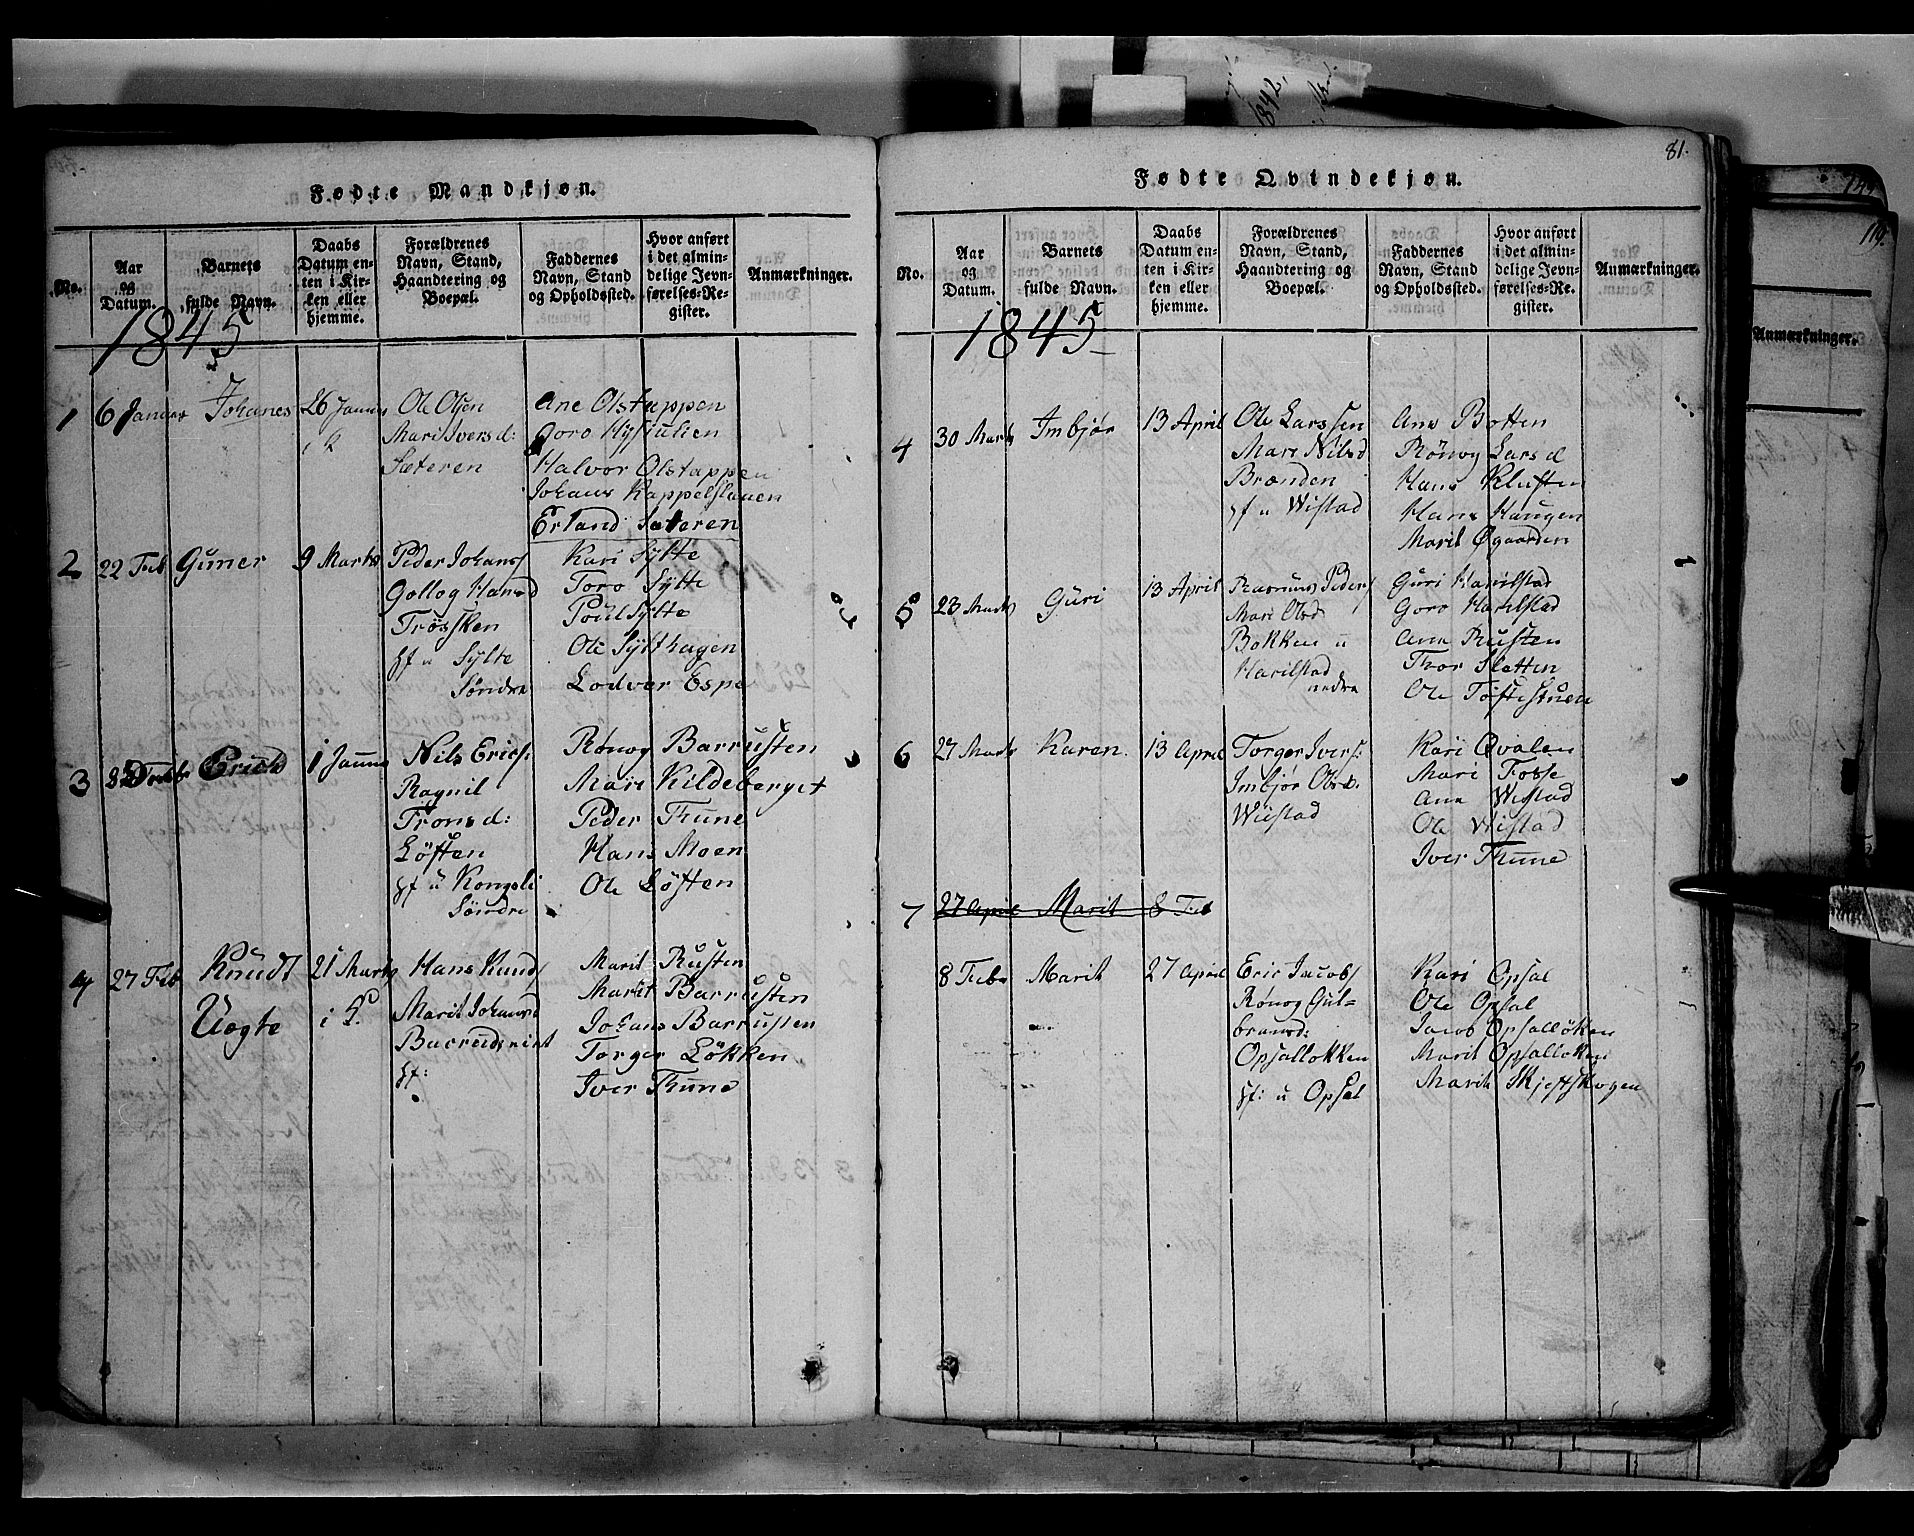 81.
Fødte Mandkjøn.
No.
Aar og Datum.
Barnets fulde Navn.
Daabs Datum enten i Kirken eller hjemme.
Forældrenes Navn, Stand, Haandtering og Boepæl.
Faddernes Navn, Stand og Opholdssted.
Hvor anført i det almindelige Jevnførelses-Register.
Anmærkninger.
1845
1
6 Januar
Johanes
26 Januar
i K
Ole Olsen
Mari Iversd:
Sæteren
Ane Olstappen
Goro Nysiulien
Halvor Olstappen
Johans Kappelslauen
Erland Sæteren
2
22 Feb
Guner
9 Marts
Peder Johans
Gollog Hansd
Trøssken
gf u Sylte
Søndre
Kari Sylte
Toro Sylte
Poul Sylte
Ole Sylthagen
Lodver Espe
3
Febr
Erich
1 Januar
Nils Erics:
Ragnil
Tronsd:
Løften
gf u Kongsli
Søndre
Rønog Barrusten
Mari Kildeberget
Peder Thune
Hans Moen
Ole Løften
4
27 Feb
Knudt
Uogte
21 Marts
i K
Hans Knuds
Marit Johansd
gf:
Marit Rusten
Marit Barrusten
Johans Barrusten
Torger Løkken
Iver Thune
Fødte Qvindekjøn.
No.
Aar og Datum.
Barnets fulde Navn.
Daabs Datum enten i Kirken eller hjemme.
Forældrenes Navn, Stand, Haandtering og Boepæl.
Faddernes Navn, Stand og Opholdssted.
Hvor anført i det almindelige Jevnførelses-Register.
Anmærkninger.
1845
4
30 Marts
Imbjør
13 April
Ole Larssen
Mari Nilsd
Brænden
gf u Wistad
Ane Botten
Rønog Larsd
Hans Kluften
Hans Haugen
Marit Øgaarden
5
23 Marts
Guri
13 April
Rasmus Peders
Mari Olsd
Bakken u
Harilstad
nedre
Guri Harilstad
Goro Harilstad
Ane Rusten
Thor Sletten
Ole Toftestuen
6
27 Marts
Karen.
13 April
Torger Ivers:
Imbjør Olsd:
Wiistad
Kari Qvalen
Mari Fosse
Ane Wistad
Ole Wistad
Iver Thune
7
27 April Marit 8 Feb
8 Febr
Marit
27 April
Eric Jacobs
Rønog Gul-
bransd:
Opsalløkken
gf: u Opsal
Kari Opsal
Ole Opsal
Jacob Opsalløkken
Marit Opsalløkken
Marit Skjefteskogen
119.
Anmærkninger.
1842.